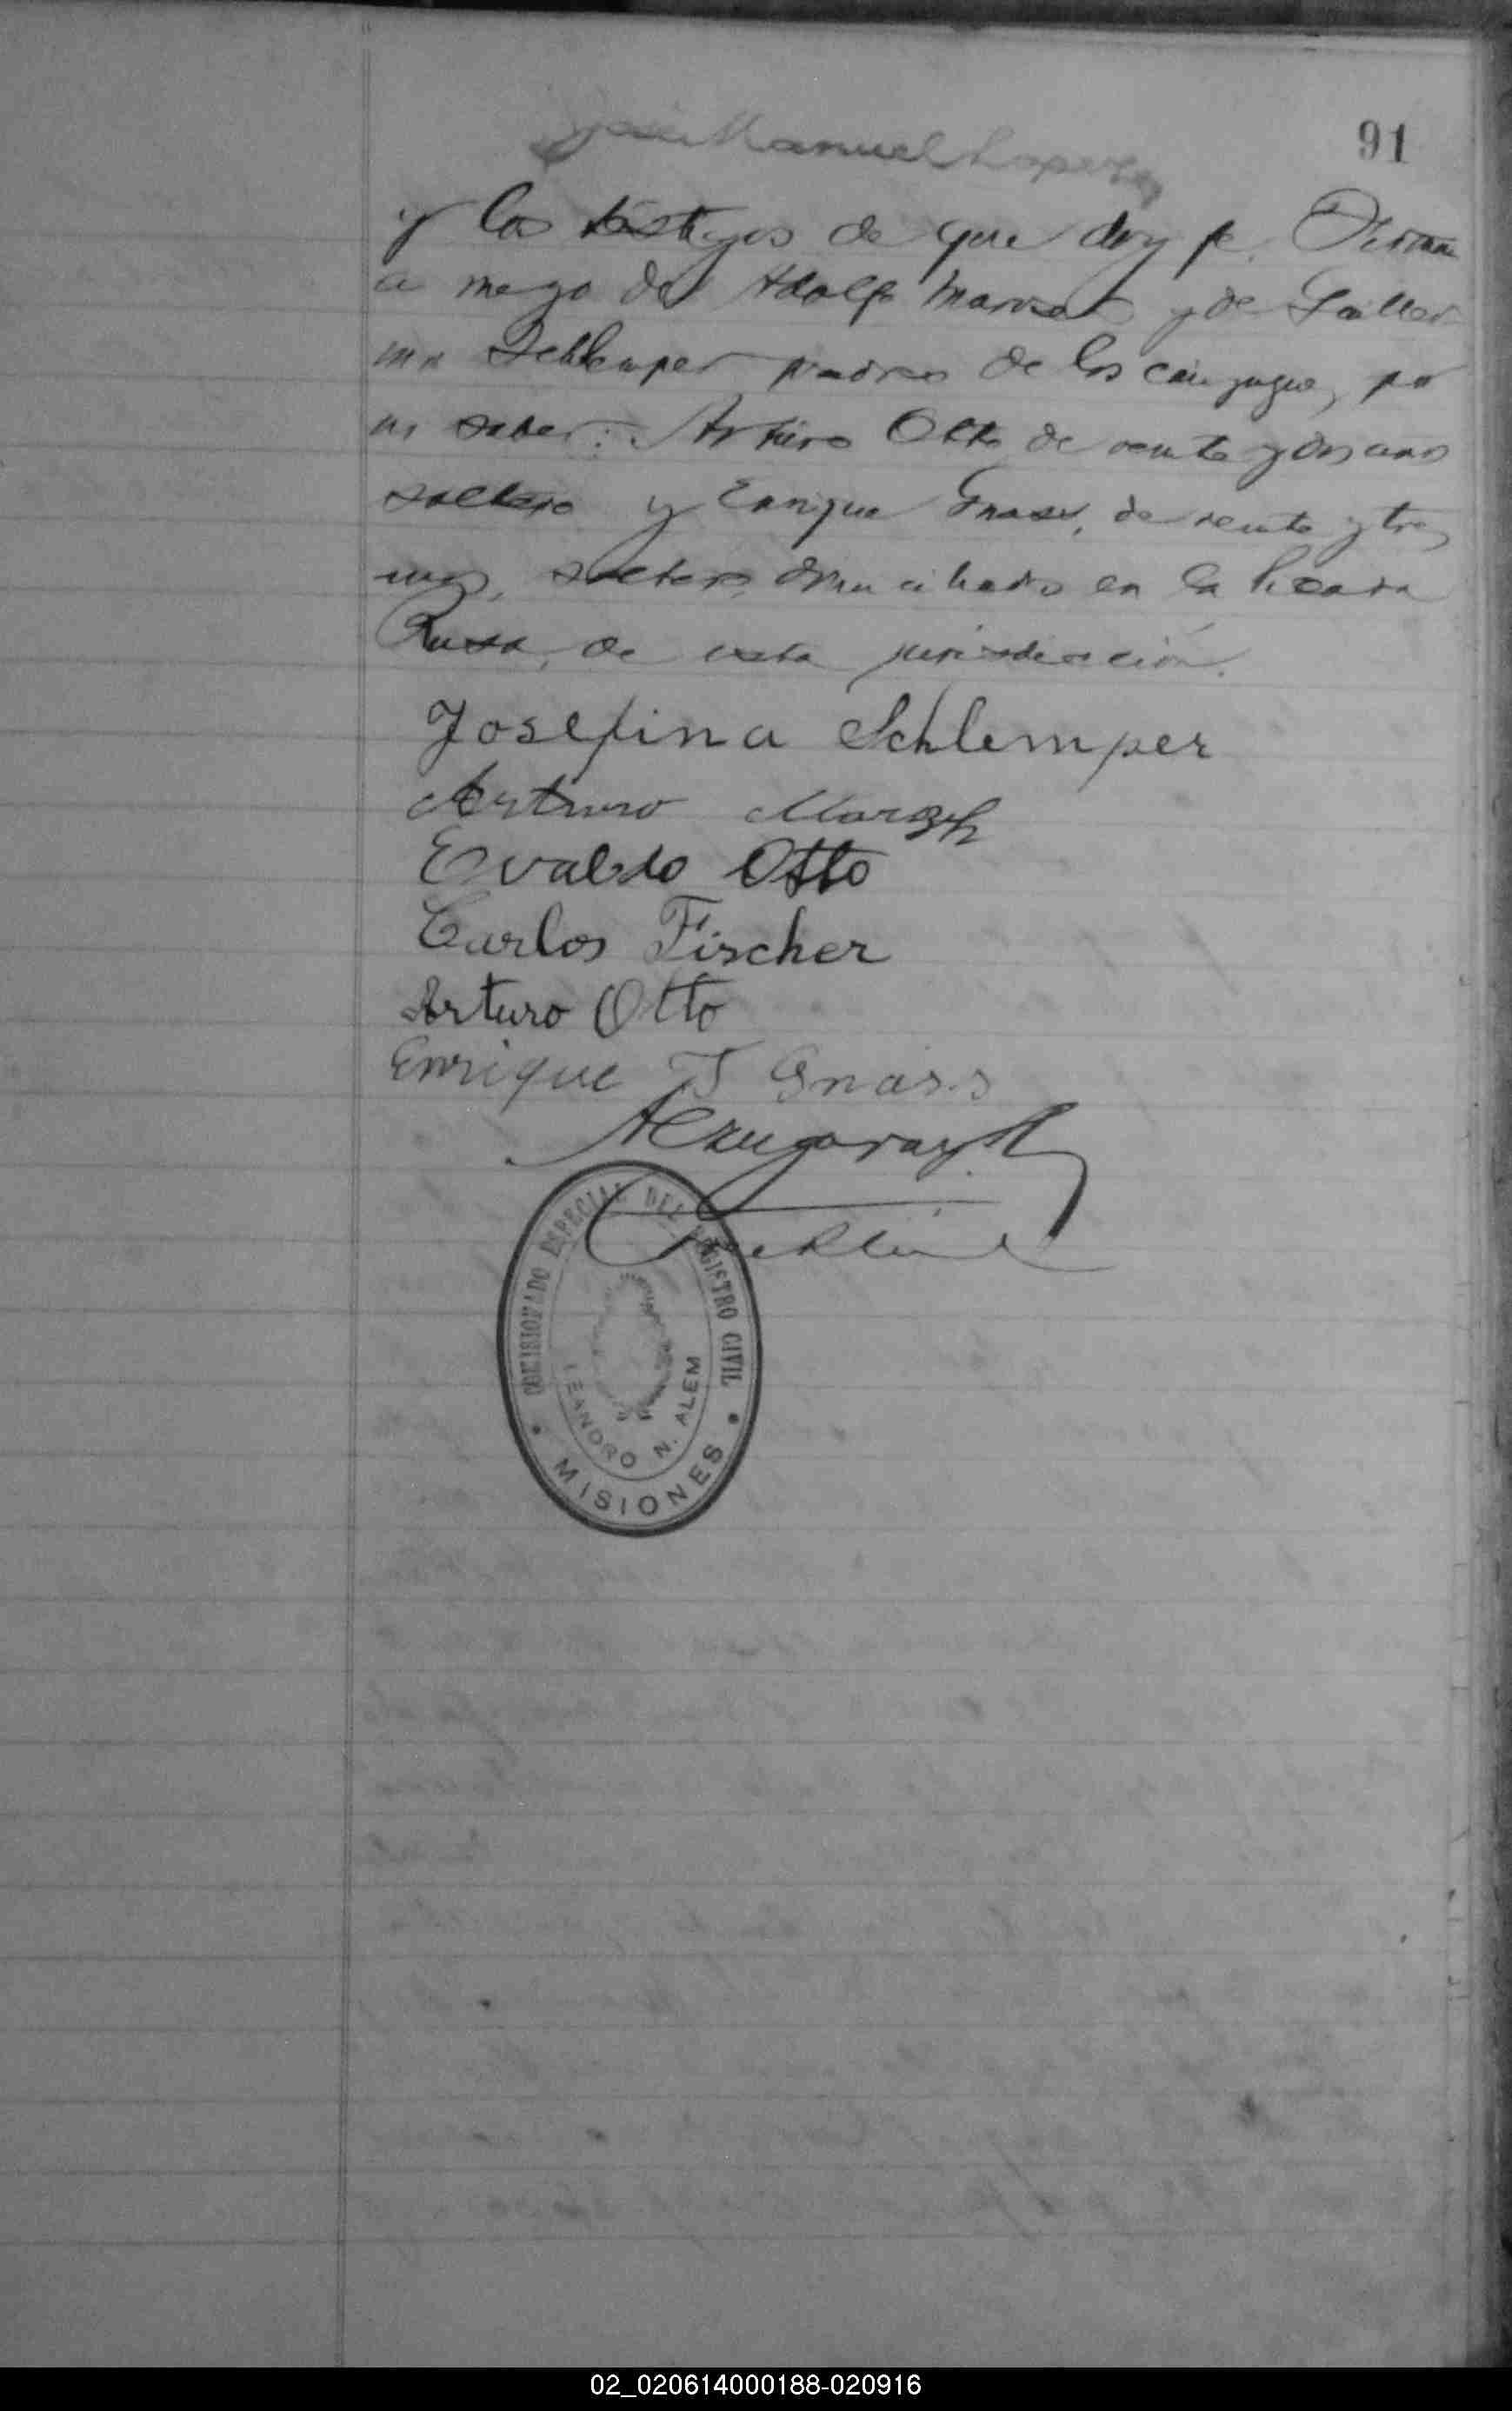 91
Manuel
y los testigos de que doy fe. Firman
a ruego de Adolfo y de Guiller
mo Schlemper padres de los conyuges, por
no saber: Arturo Otto de veinte y dos anos
soltero y Enrique Gnass, de veinte y tres
anos, soltero, domiciliados en la Picada
Rusa, de esta jurisdicción.
Josefina Schlemper
Arturo
Evaldo Otto
Carlos Fischer
Arturo Otto
Enrique T Gnass
Azugaray
COMISIONADO ESPECIAL DEL REGISTRO CIVIL
LEANDRO N. ALEM
MISIONES
02_020614000188-020916